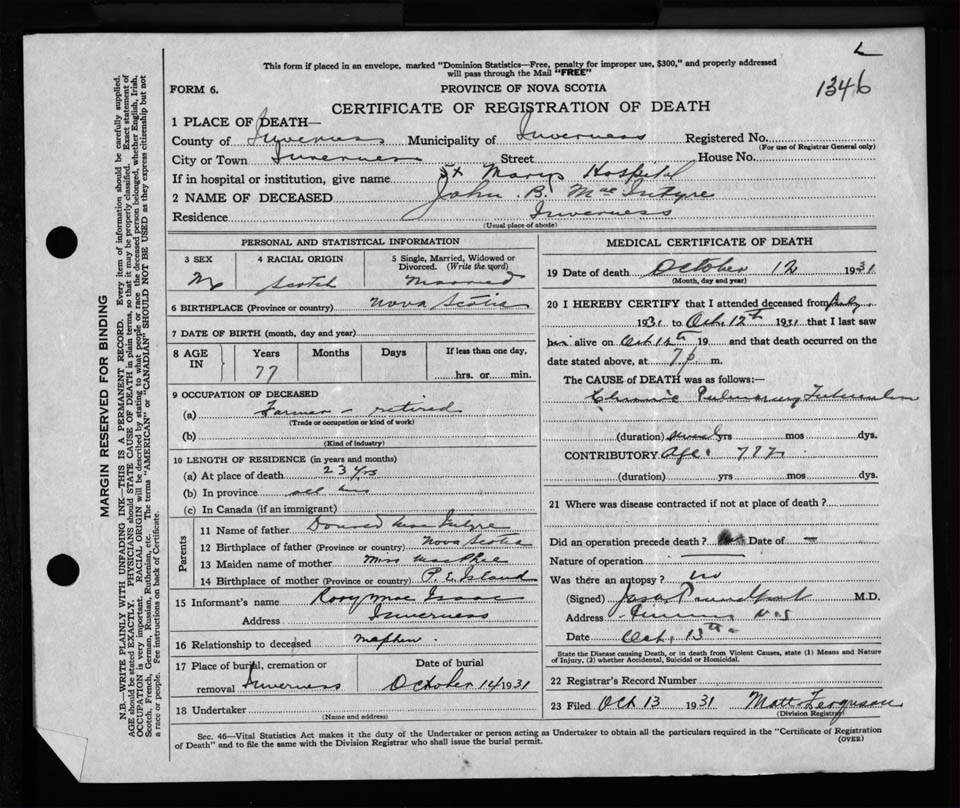 L
This form if placed in an envelope, marked "Dominion Statistics—Free, penalty for improper use, $300," and properly addressed
will pass through the Mail "FREE"
1346
FORM 6.
PROVINCE OF NOVA SCOTIA
CERTIFICATE OF REGISTRATION OF DEATH
1 PLACE OF DEATH—
County of Inverness Municipality of Inverness Registered No.
(For use of Registrar General only)
City or Town Inverness Street House No.
If in hospital or institution, give name St Marys Hospital
2 NAME OF DECEASED John B. MacIntyre
Residence Inverness
(Usual place of abode)
PERSONAL AND STATISTICAL INFORMATION
3 SEX 4 RACIAL ORIGIN 5 Single, Married, Widowed or
Divorced. (Write the word)
M Scotch Married
6 BIRTHPLACE (Province or country) Nova Scotia
7 DATE OF BIRTH (month, day and year)
8 AGE IN Years Months Days If less than one day,
77 hrs. or min.
9 OCCUPATION OF DECEASED
(a) Farmer - retired
(Trade or occupation or kind of work)
(b)
(Kind of industry)
10 LENGTH OF RESIDENCE (in years and months)
(a) At place of death 23 yrs
(b) In province all
(c) In Canada (if an immigrant)
Parents
11 Name of father Donald MacIntyre
12 Birthplace of father (Province or country) Nova Scotia
13 Maiden name of mother Miss MacPhee
14 Birthplace of mother (Province or country) P. E. Island
15 Informant's name Rory MacIsaac
Address Inverness
16 Relationship to deceased Nephew.
17 Place of burial, cremation or Date of burial
removal Inverness October 14 1931
18 Undertaker
(Name and address)
MEDICAL CERTIFICATE OF DEATH
19 Date of death October 12 1931
(Month, day and year)
20 I HEREBY CERTIFY that I attended deceased from July
1931 to Oct. 12th 1931 that I last saw
him alive on Oct. 12th 19 and that death occurred on the
date stated above, at 7 p m.
The CAUSE of DEATH was as follows:—
Chronic Pulmonary Tuberculosis
(duration) several yrs mos dys.
CONTRIBUTORY Age.
(duration) yrs mos dys.
21 Where was disease contracted if not at place of death?
Did an operation precede death? Date of —
Nature of operation
Was there an autopsy? no
(Signed) M.D.
Address Inverness N.S
Date Oct. 13th
State the Disease causing Death, or in death from Violent Causes, state (1) Means and Nature
of Injury, (2) whether Accidental, Suicidal or Homicidal.
22 Registrar's Record Number
23 Filed Oct 13 1931 Matt F. Ferguson
(Division Registrar)
Sec. 46—Vital Statistics Act makes it the duty of the Undertaker or person acting as Undertaker to obtain all the particulars required in the "Certificate of Registration
of Death" and to file the same with the Division Registrar who shall issue the burial permit.
(OVER)
MARGIN RESERVED FOR BINDING
N.B.—WRITE PLAINLY WITH UNFADING INK—THIS IS A PERMANENT RECORD. Every item of information should be carefully supplied.
AGE should be stated EXACTLY. PHYSICIANS should STATE CAUSE OF DEATH in plain terms, so that it may be properly classified. Exact statement of
OCCUPATION is very important. RACIAL ORIGIN will be described by stating to what people or race the deceased person belonged, whether English, Irish,
Scotch, French, German, Russian, Ruthenian, etc. The terms "AMERICAN" or "CANADIAN" SHOULD NOT BE USED as they express citizenship but not
a race or people. See instructions on back of Certificate.